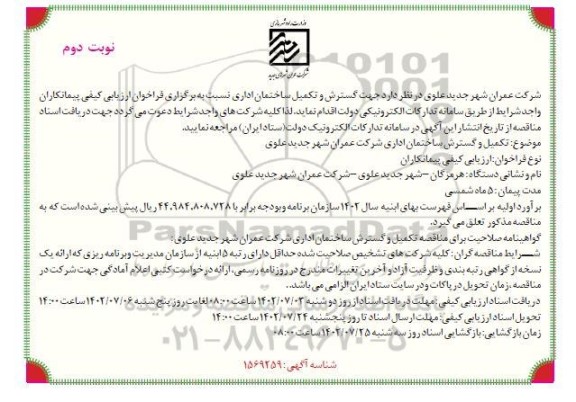 وزارت راه و شهرسازی
شرکت عمران شهرهای جدید
نوبت دوم
شرکت عمران شهر جدید علوی در نظر دارد جهت گسترش و تکمیل ساختمان اداری نسبت به برگزاری فراخوان ارزیابی کیفی پیمانکاران
واجد شرایط از طریق سامانه تدارکات الکترونیکی دولت اقدام نماید. لذا کلیه شرکت های واجد شرایط دعوت می گردد جهت دریافت اسناد
مناقصه از تاریخ انتشار این آگهی در سامانه تدارکات الکترونیک دولت (ستاد ایران) مراجعه نمایید.
موضوع: تکمیل و گسترش ساختمان اداری شرکت عمران شهر جدید علوی
نوع فراخوان: ارزیابی کیفی پیمانکاران
نام و نشانی دستگاه: هرمزگان – شهر جدید علوی – شرکت عمران شهر جدید علوی
مدت پیمان: ۵ ماه شمسی
برآورد اولیه بر اساس فهرست بهای ابنیه سال ۱۴۰۲ سازمان برنامه و بودجه برابر با ۴۴،۹۸۴،۸۰۸،۷۲۸ ریال پیش بینی شده است که به
مناقصه مذکور تعلق می گیرد.
گواهینامه صلاحیت برای مناقصه تکمیل و گسترش ساختمان اداری شرکت عمران شهر جدید علوی:
شرایط مناقصه گران: کلیه شرکت های تشخیص صلاحیت شده حداقل دارای رتبه ۵ ابنیه از سازمان مدیریت و برنامه ریزی که ارائه یک
نسخه از گواهی رتبه بندی و ظرفیت آزاد و آخرین تغییرات مندرج در روزنامه رسمی، ارائه درخواست کتبی اعلام آمادگی جهت شرکت در
مناقصه، زمان تحویل در پاکات و در سایت ستاد ایران الزامی می باشد.
دریافت اسناد ارزیابی کیفی: مهلت دریافت اسناد از روز دوشنبه ۱۴۰۲/۰۷/۰۳ ساعت ۰۸:۰۰ لغایت روز پنج شنبه ۱۴۰۲/۰۷/۰۶ ساعت ۱۴:۰۰
تحویل اسناد ارزیابی کیفی: مهلت ارسال اسناد تا روز پنجشنبه ۱۴۰۲/۰۷/۲۴ ساعت ۱۴:۰۰
زمان بازگشایی: بازگشایی اسناد روز سه شنبه ۱۴۰۲/۰۷/۲۵ ساعت ۰۸:۰۰
۰۲۱-۸۸۳۴۹۶۷۰-۵
شناسه آگهی: ۱۵۶۹۲۵۹